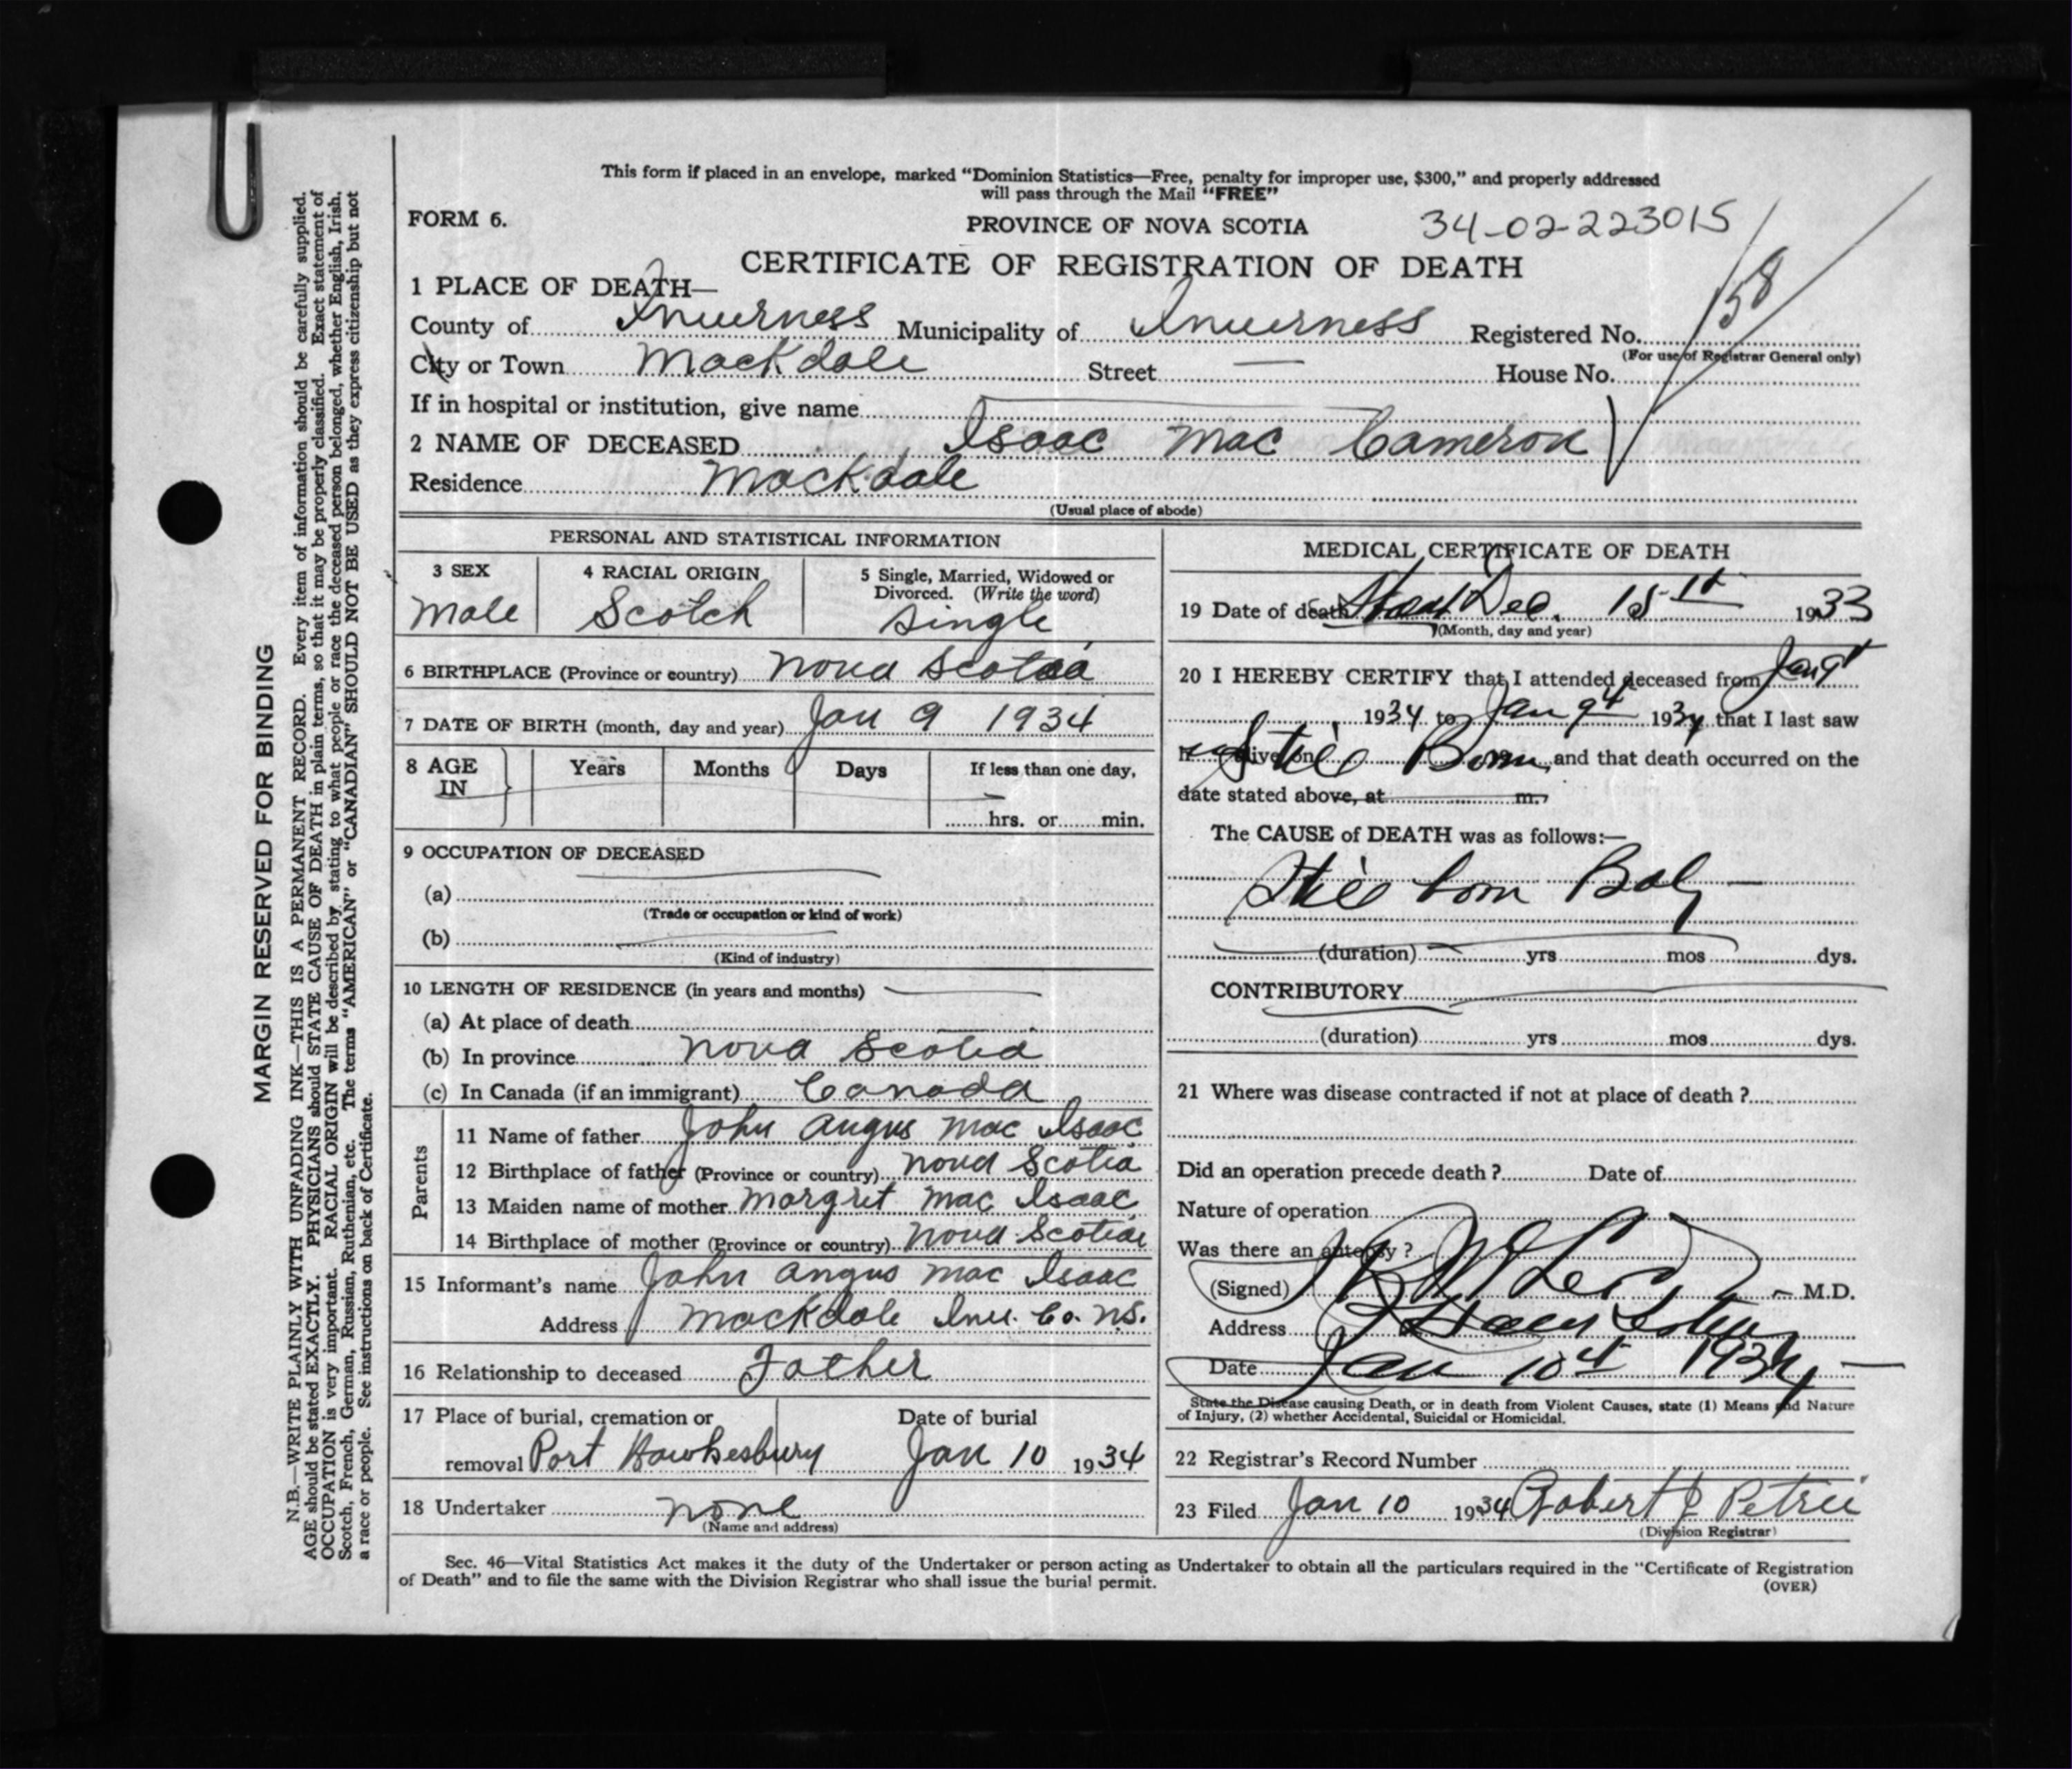 This form if placed in an envelope, marked "Dominion Statistics—Free, penalty for improper use, $300," and properly addressed
will pass through the Mail "FREE"
FORM 6.
PROVINCE OF NOVA SCOTIA
34-02-223015
CERTIFICATE OF REGISTRATION OF DEATH
158
1 PLACE OF DEATH—
County of Inverness Municipality of Inverness Registered No.
(For use of Registrar General only)
City or Town Mackdale Street — House No.
If in hospital or institution, give name
2 NAME OF DECEASED Isaac Mac Cameron
Residence Mackdale
(Usual place of abode)
PERSONAL AND STATISTICAL INFORMATION
3 SEX
Male
4 RACIAL ORIGIN
Scotch
5 Single, Married, Widowed or
Divorced. (Write the word)
Single
6 BIRTHPLACE (Province or country) Nova Scotia
7 DATE OF BIRTH (month, day and year) Jan 9 1934
8 AGE IN Years Months Days If less than one day,
hrs. or min.
9 OCCUPATION OF DECEASED
(a)
(Trade or occupation or kind of work)
(b)
(Kind of industry)
10 LENGTH OF RESIDENCE (in years and months)
(a) At place of death
(b) In province Nova Scotia
(c) In Canada (if an immigrant) Canada
Parents
11 Name of father John Angus Mac Isaac
12 Birthplace of father (Province or country) Nova Scotia
13 Maiden name of mother Margret Mac Isaac
14 Birthplace of mother (Province or country) Nova Scotia
15 Informant's name John Angus Mac Isaac
Address Mackdale Inv. Co. N.S.
16 Relationship to deceased Father
17 Place of burial, cremation or Date of burial
removal Port Hawkesbury Jan 10 1934
18 Undertaker none
(Name and address)
MEDICAL CERTIFICATE OF DEATH
19 Date of death Dec. 15th 1933
(Month, day and year)
20 I HEREBY CERTIFY that I attended deceased from Jan 9th
1934 to Jan 9th 1934 that I last saw
h alive on Still Born and that death occurred on the
date stated above, at m.
The CAUSE of DEATH was as follows:—
Still born Baby
(duration) yrs mos dys.
CONTRIBUTORY
(duration) yrs mos dys.
21 Where was disease contracted if not at place of death ?
Did an operation precede death ? Date of
Nature of operation
Was there an autopsy ?
(Signed) M.D.
Address
Date Jan 10th 1934
State the Disease causing Death, or in death from Violent Causes, state (1) Means and Nature
of Injury, (2) whether Accidental, Suicidal or Homicidal.
22 Registrar's Record Number
23 Filed Jan 10 1934 Robert J Petrie
(Division Registrar)
Sec. 46—Vital Statistics Act makes it the duty of the Undertaker or person acting as Undertaker to obtain all the particulars required in the "Certificate of Registration
of Death" and to file the same with the Division Registrar who shall issue the burial permit.
(OVER)
MARGIN RESERVED FOR BINDING
N.B.—WRITE PLAINLY WITH UNFADING INK—THIS IS A PERMANENT RECORD. Every item of information should be carefully supplied.
AGE should be stated EXACTLY. PHYSICIANS should STATE CAUSE OF DEATH in plain terms, so that it may be properly classified. Exact statement of
OCCUPATION is very important. RACIAL ORIGIN will be described by stating to what people or race the deceased person belonged, whether English, Irish,
Scotch, French, German, Russian, Ruthenian, etc. The terms "AMERICAN" or "CANADIAN" SHOULD NOT BE USED as they express citizenship but not
a race or people. See instructions on back of Certificate.